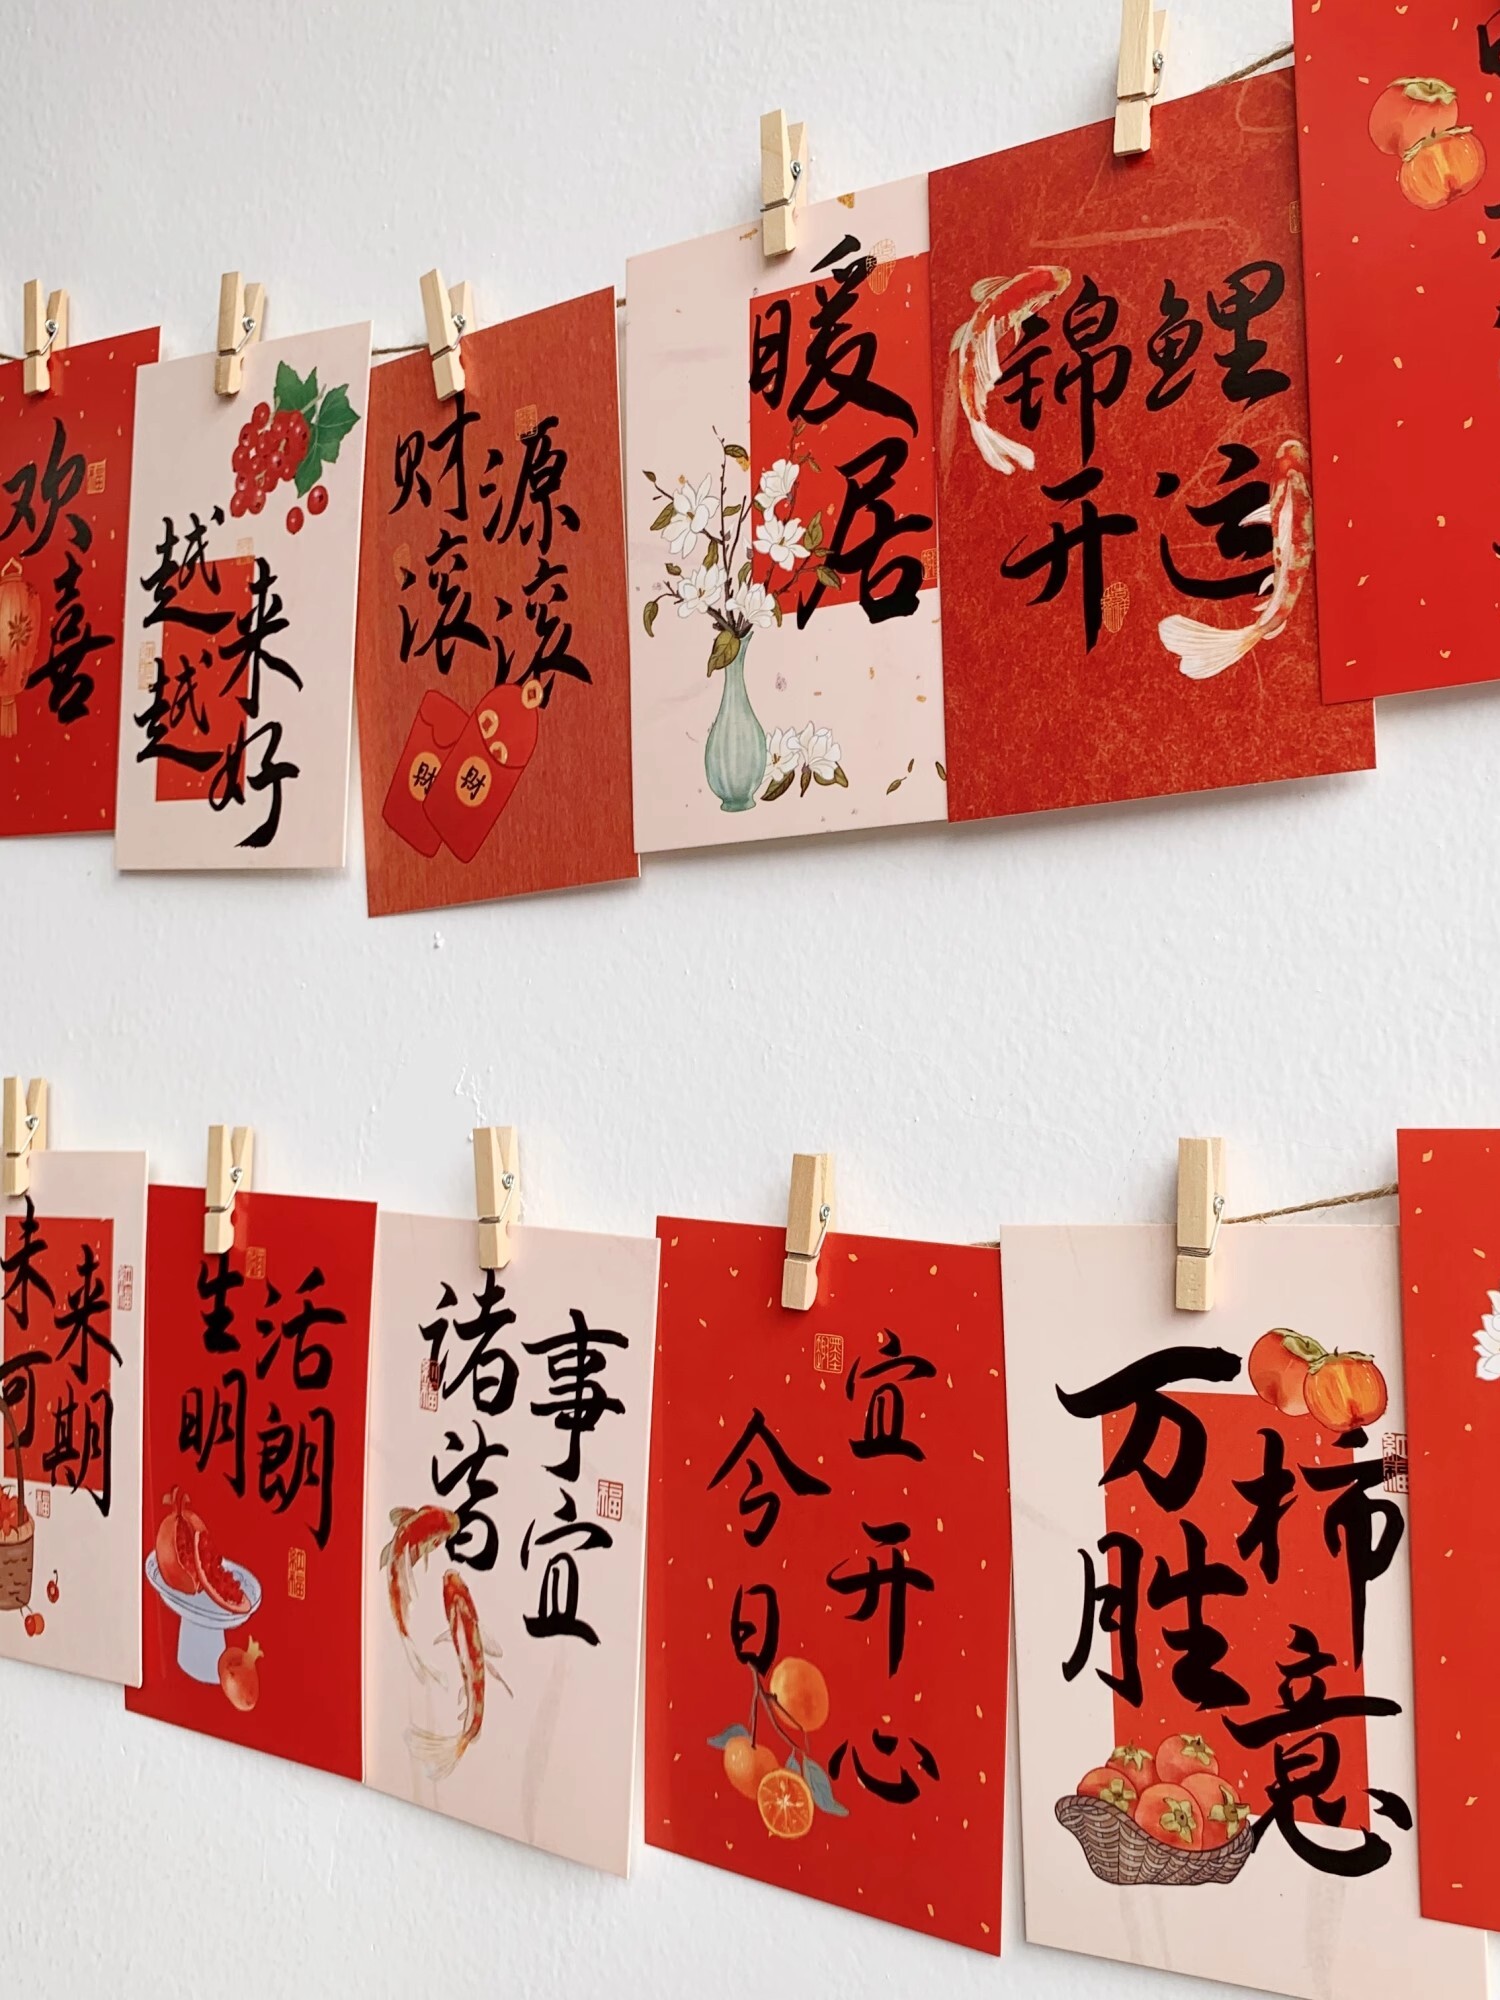 欢喜
越来
越好
财源
滚滚
財
財
暖居
锦鲤
开运
未来
可期
生活
明朗
诸事
皆宜
福
今日
宜开心
万柿
胜意